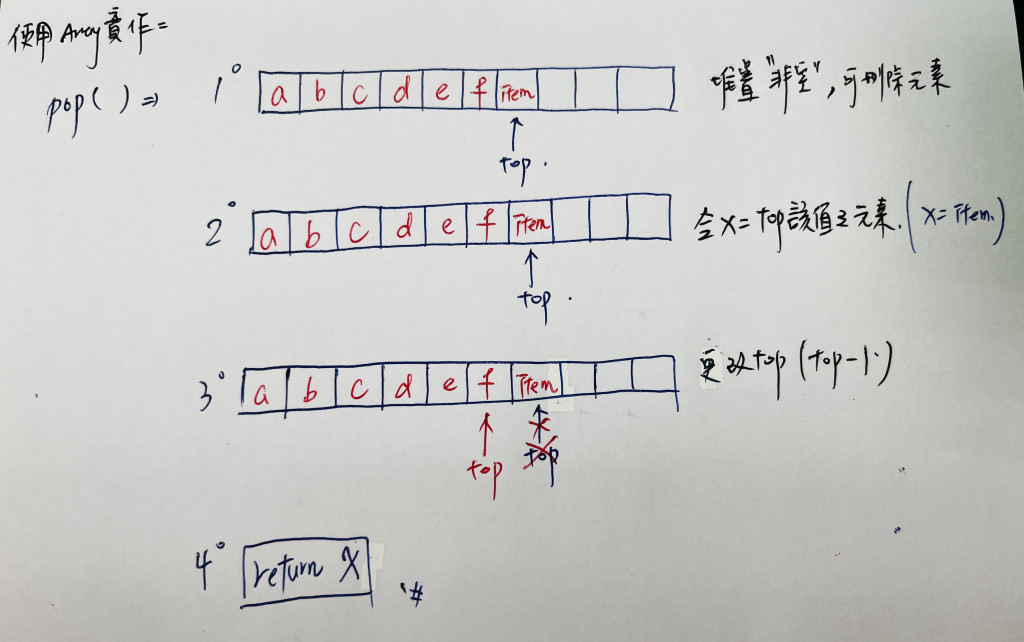 使用Array實作=
pop( ) ⇒
1° a b c d e f item 堆疊"非空",可刪除元素
top.
2° a b c d e f item 令X=top該值之元素.(X=item.)
top.
3° a b c d e f item 更改top(top-1.)
top top
4° return X #